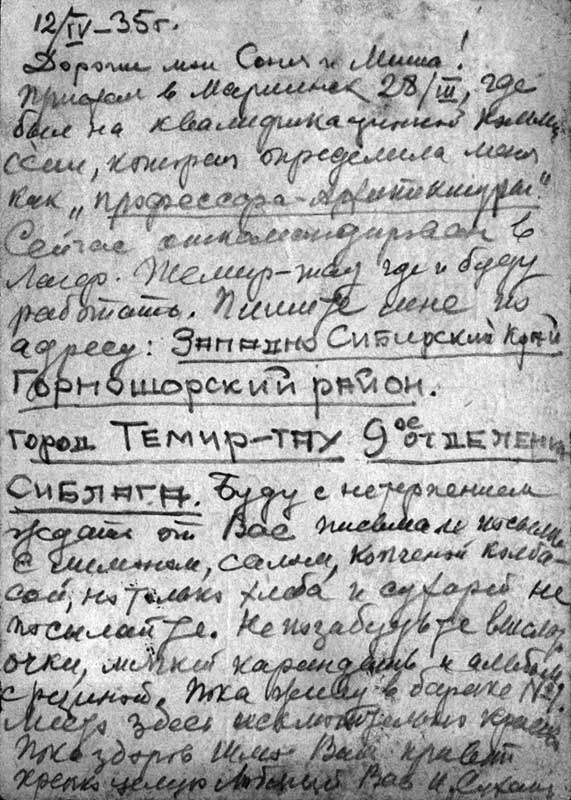 12/IV-35г.
Дорогие мои Соня и Миша!
Приехал в Мариинск 28/III, где
был на квалификационной комис-
сии, которая определила меня
как „профессора-архитектуры".
Сейчас откомандирован в
лагер. Темир-тау где и буду
работать. Пишите мне по
адресу: Западно Сибирский Край
Горношорский район.
город Темир-тау 9ое отделение
Сиблага. Буду с нетерпением
ждать от Вас письма и посылки
с лимоном, салом, копченой колба-
сой, но только хлеба и сухарей не
посылайте. Не позабудьте выслать
очки, мягкий карандаш и альбом
с резиной. Пока живу в бараке №
Место здесь исключительно красив
Пока здоров шлю Вам привет
крепко целую Любящий Вас